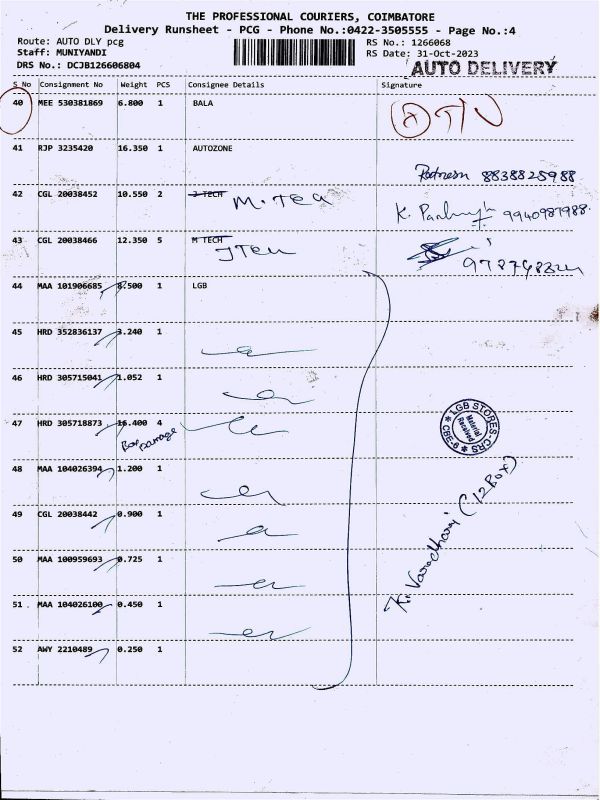 THE PROFESSIONAL COURIERS, COIMBATORE
Delivery Runsheet - PCG - Phone No.:0422-3505555 - Page No.:4
Route: AUTO DLY pcg RS No.: 1266068
Staff: MUNIYANDI RS Date: 31-Oct-2023
DRS No.: DCJB126606804 AUTO DELIVERY
S No Consignment No Weight PCS Consignee Details Signature
40 MEE 530381869 6.800 1 BALA
41 RJP 3235420 16.350 1 AUTOZONE
8838825988
42 CGL 20038452 10.550 2 J TECH M. TEC
K. 9940987988
43 CGL 20038466 12.350 5 M TECH J TECH
44 MAA 101906685 8.500 1 LGB
45 HRD 352836137 3.240 1
46 HRD 305715041 1.052 1
47 HRD 305718873 16.400 4
Box Damage
LGB STORES-CRS
Material Received
CBE-6
48 MAA 104026394 1.200 1
49 CGL 20038442 0.900 1
50 MAA 100959693 0.725 1
K. Varadharaj (12 Box)
51 MAA 104026100 0.450 1
52 AWY 2210489 0.250 1